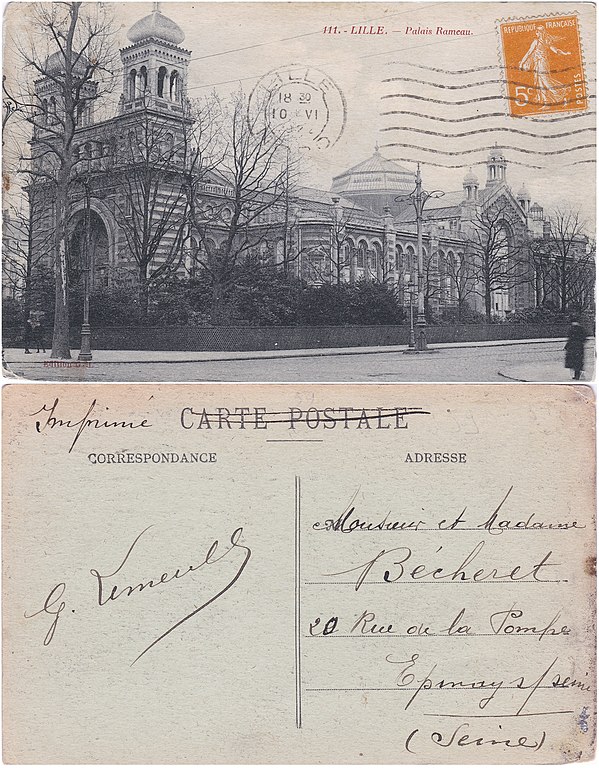 111. - LILLE. — Palais Rameau.
REPUBLIQUE FRANÇAISE
5c
POSTES
LILLE
18 30
10 VI
Imprimé CARTE POSTALE
CORRESPONDANCE
ADRESSE
G.
Monsieur et Madame
Bécheret
20 Rue de la Pompe
Epinay s/seine
(Seine)